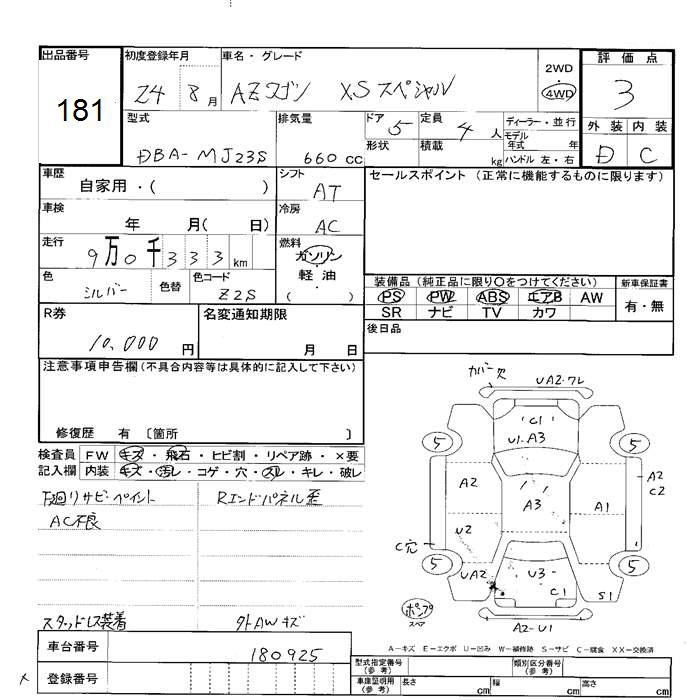 出品番号
181
初度登録年月
24 8月
車名・グレード
AZワゴン XSスペシャル
2WD
・
4WD
評価点
3
外装 内装
D C
型式
DBA-MJ23S
排気量
660 cc
ドア 5
形状
定員 4 人
積載 kg
ディーラー・並行
モデル年式 年
ハンドル 左・右
車歴
自家用・( )
シフト
AT
車検
年 月( 日)
冷房
AC
走行
9万0千333km
燃料
ガソリン
軽・油
( )
色
シルバー
色替
色コード
Z2S
セールスポイント (正常に機能するものに限ります)
装備品 (純正品に限り○をつけてください)
PS PW ABS エアB AW
SR ナビ TV カワ
新車保証書
有・無
後日品
R券
10,000 円
名変通知期限
月 日
注意事項申告欄 (不具合内容等は具体的に記入して下さい)
修復歴 有 〔箇所 〕
検査員 FW キズ・飛石・ヒビ割・リペア跡・×要
記入欄 内装 キズ・汚レ・コゲ・穴・スレ・キレ・破レ
下廻リサビ・ペイント
AC不良
Rエンドパネル歪
スタッドレス装着
外AWキズ
カバー欠
UA2・ワレ
C1
U1・A3
5
5
A2
A3
A1
A2
C2
U2
C穴
5
UA2
U3
5
C1
S1
ポンプ
スペア
A2-U1
A-キズ E-エクボ U-凹み W-補修跡 S-サビ C-腐食 XX-交換済
車台番号
180925
登録番号
型式指定番号
(参考)
類別区分番号
(参考)
車庫証明用
(参考)
長さ cm
幅 cm
高さ cm